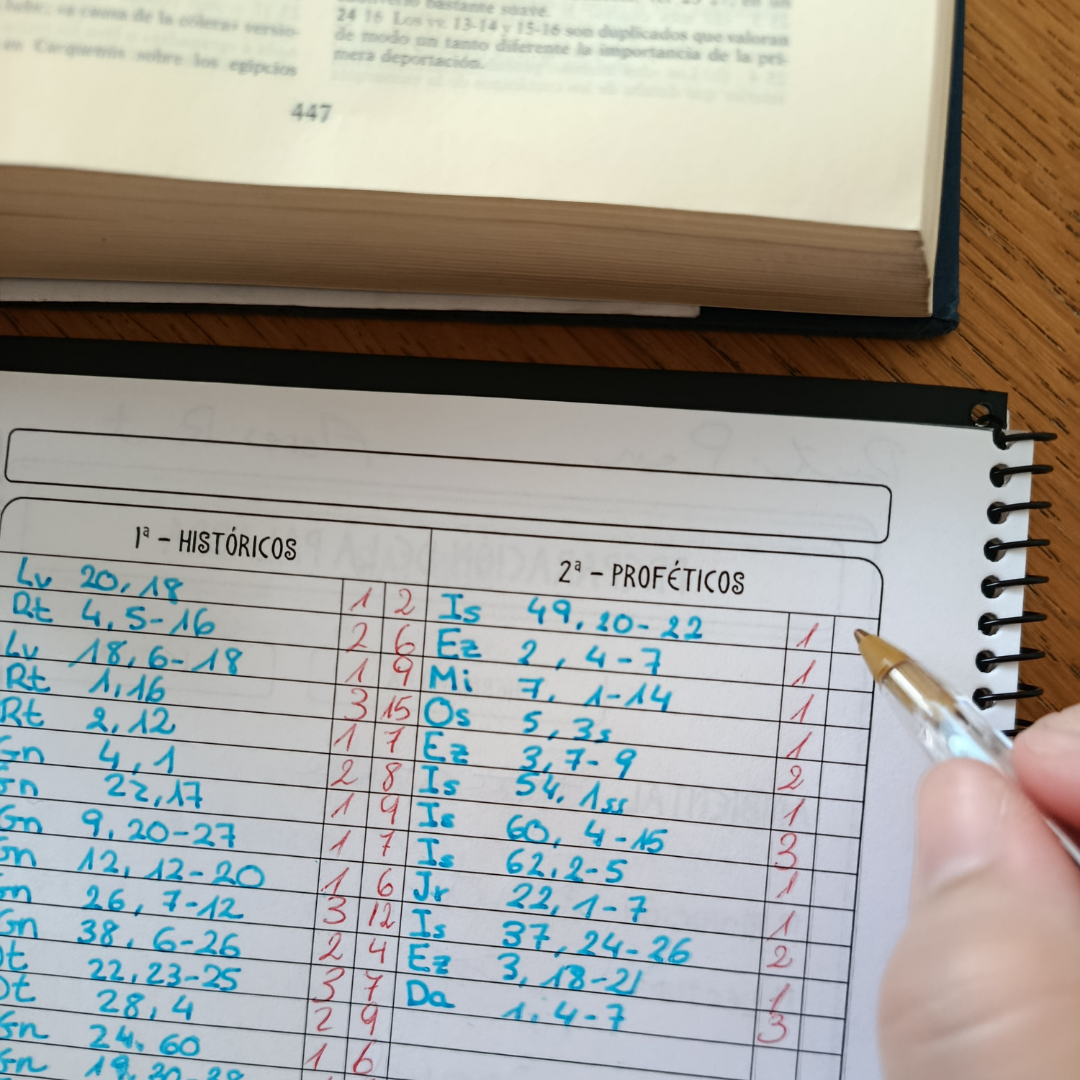 a causa de la cólera» versio-
sobre los egipcios
bastante suave.
24 16 Los vv. 13-14 y 15-16 son duplicados que valoran
de modo un tanto diferente la importancia de la pri-
mera deportación.
447
1ª - HISTÓRICOS
Lv 20,18 1 2
Rt 4,5-16 2 6
Lv 18,6-18 1 9
Rt 1,16 3 15
Rt 2,12 1 7
Gn 4,1 2 8
Gn 22,17 1 9
Gn 9,20-27 1 7
Gn 12,12-20 1 6
Gn 26,7-12 3 12
Gn 38,6-26 2 4
Dt 22,23-25 3 7
Dt 28,4 2 9
Gn 24,60 1 6
Gn
2ª - PROFÉTICOS
Is 49,20-22 1
Ez 2,4-7 1
Mi 7,1-14 1
Os 5,3s 1
Ez 3,7-9 2
Is 54,1ss 1
Is 60,4-15 3
Is 62,2-5 1
Jr 22,1-7 1
Is 37,24-26 2
Ez 3,18-21 1
Da 1,4-7 3